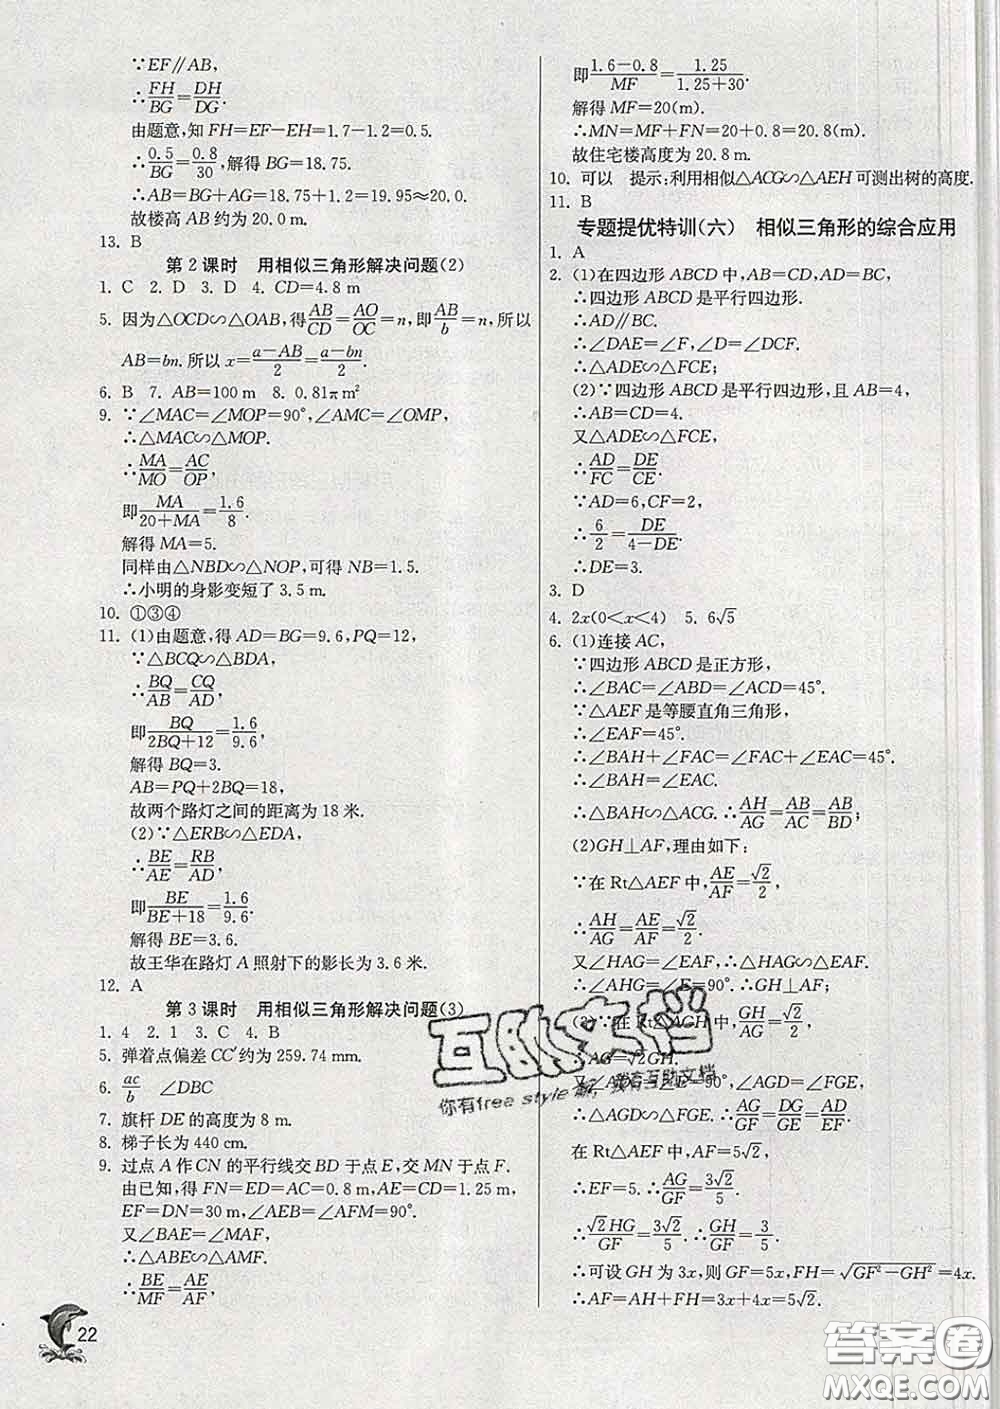 ∵EF∥AB,
∴FH/BG=DH/DG.
由题意,知 FH=EF-EH=1.7-1.2=0.5.
∴0.5/BG=0.8/30,解得 BG=18.75.
∴AB=BG+AG=18.75+1.2=19.95≈20.0.
故楼高 AB 约为 20.0 m.
13. B
第 2 课时 用相似三角形解决问题(2)
1. C 2. D 3. D 4. CD=4.8 m
5. 因为△OCD∽△OAB,得AB/CD=AO/OC=n,即AB/b=n,所以
AB=bn.所以 x=(a-AB)/2=(a-bn)/2.
6. B 7. AB=100 m 8. 0.81π m²
9. ∵∠MAC=∠MOP=90°,∠AMC=∠OMP,
∴△MAC∽△MOP.
∴MA/MO=AC/OP,
即MA/(20+MA)=1.6/8.
解得 MA=5.
同样由△NBD∽△NOP,可得 NB=1.5.
∴小明的身影变短了 3.5 m.
10. ①③④
11. (1)由题意,得 AD=BG=9.6,PQ=12,
∵△BCQ∽△BDA,
∴BQ/AB=CQ/AD,
即BQ/(2BQ+12)=1.6/9.6,
解得 BQ=3.
AB=PQ+2BQ=18,
故两个路灯之间的距离为 18 米.
(2)∵△ERB∽△EDA,
∴BE/AE=RB/AD,
即BE/(BE+18)=1.6/9.6.
解得 BE=3.6.
故王华在路灯 A 照射下的影长为 3.6 米.
12. A
第 3 课时 用相似三角形解决问题(3)
1. 4 2. 1 3. C 4. B
5. 弹着点偏差 CC′约为 259.74 mm.
6. ac/b ∠DBC
7. 旗杆 DE 的高度为 8 m.
8. 梯子长为 440 cm.
9. 过点 A 作 CN 的平行线交 BD 于点 E,交 MN 于点 F.
由已知,得 FN=ED=AC=0.8 m,AE=CD=1.25 m,
EF=DN=30 m,∠AEB=∠AFM=90°.
又∠BAE=∠MAF,
∴△ABE∽△AMF.
∴BE/MF=AE/AF,
22
即(1.6-0.8)/MF=1.25/(1.25+30).
解得 MF=20(m).
∴MN=MF+FN=20+0.8=20.8(m).
故住宅楼高度为 20.8 m.
10. 可以 提示:利用相似△ACG∽△AEH 可测出树的高度.
11. B
专题提优特训(六) 相似三角形的综合应用
1. A
2. (1)在四边形 ABCD 中,AB=CD,AD=BC,
∴四边形 ABCD 是平行四边形.
∴AD∥BC.
∴∠DAE=∠F,∠D=∠DCF.
∴△ADE∽△FCE;
(2)∵四边形 ABCD 是平行四边形,且 AB=4,
∴AB=CD=4.
又△ADE∽△FCE,
∴AD/FC=DE/CE.
∵AD=6,CF=2,
∴6/2=DE/(4-DE).
∴DE=3.
3. D
4. 2x(0<x<4) 5. 6√5
6. (1)连接 AC,
∵四边形 ABCD 是正方形,
∴∠BAC=∠DAC=∠ACD=45°.
∵△AEF 是等腰直角三角形,
∴∠EAF=45°.
∴∠BAH+∠FAC=∠FAC+∠EAC=45°.
∴∠BAH=∠EAC.
∴△BAH∽△ACG. ∴AH/AG=AB/AC=AB/BD;
(2)GH⊥AF,理由如下:
∵在 Rt△AEF 中,AE/AF=√2/2,
∴AH/AG=AE/AF=√2/2.
又∠HAG=∠EAF,∴△HAG∽△EAF.
∴∠AHG=∠AEF=90°.∴GH⊥AF;
(3)∵在 Rt△AGH 中,GH/AG=√2/2,
∴AG=√2GH.
又∠ADE=∠AEF=90°,∠AGD=∠FGE,
∴△AGD∽△FGE. ∴AG/GF=DG/GE=AD/EF.
在 Rt△AEF 中,AF=5√2,
∴EF=5. ∴AG/GF=3√2/5.
∴√2HG/GF=3√2/5. ∴GH/GF=3/5.
∴可设 GH 为 3x,则 GF=5x,FH=√(GF²-GH²)=4x.
∴AF=AH+FH=3x+4x=5√2.
互助文档
你有free style 嘛,我有互助文档
答案圈
MXQE.COM